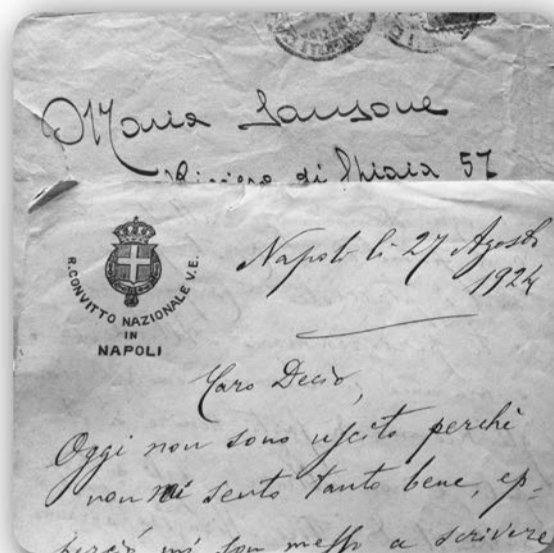 Maria Sansone
Riviera di Chiaia 57
R. CONVITTO NAZIONALE V.E.
IN
NAPOLI
Napoli li 27 Agosto
1924
Caro Decio,
Oggi non sono uscito perchè
non mi sento tanto bene, ep=
perciò mi son messo a scrivere